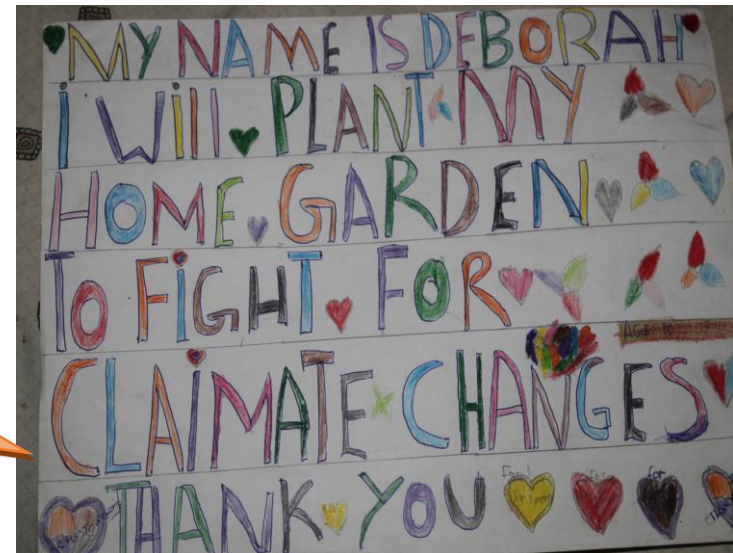 MY NAME IS DEBORAH
i Will PLANT MY
HOME GARDEN
TO FiGHT FOR
AGE 10
CLAiMATE CHANGES
THANK YOU
for for